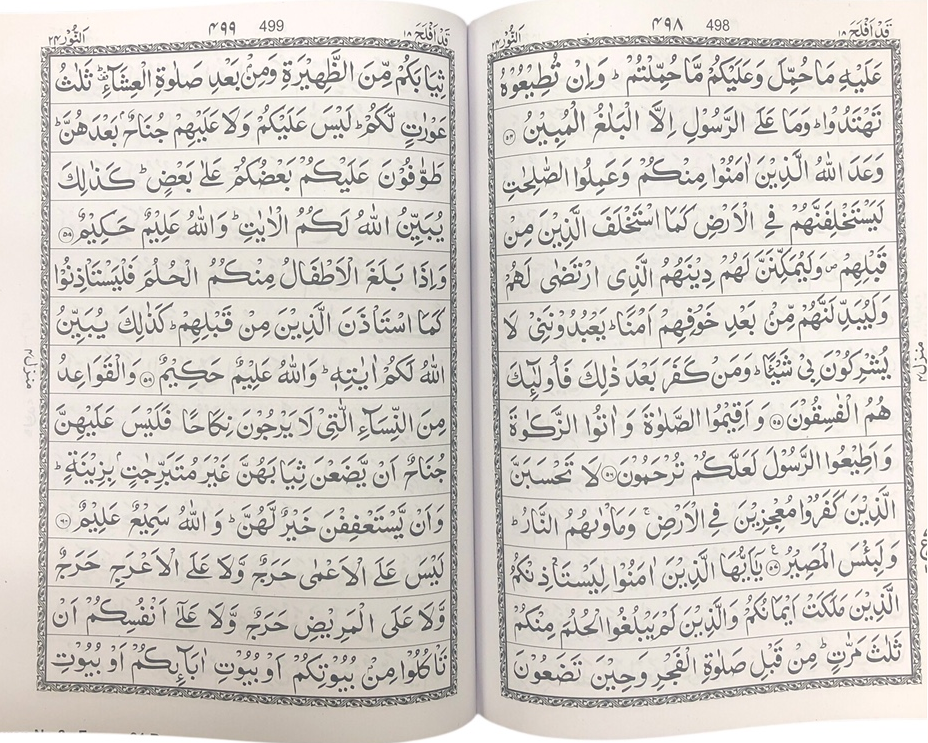 قَدْ اَفْلَحَ ١٨
٤٩٨ 498
اَلنُّوْرُ ٢٤
عَلَيْهِ مَا حُمِّلَ وَعَلَيْكُمْ مَّا حُمِّلْتُمْ ؕ وَاِنْ تُطِيْعُوْهُ
تَهْتَدُوْا ؕ وَمَا عَلَى الرَّسُوْلِ اِلَّا الْبَلٰغُ الْمُبِيْنُ ﴿۵۴﴾
وَعَدَ اللّٰهُ الَّذِيْنَ اٰمَنُوْا مِنْكُمْ وَعَمِلُوا الصّٰلِحٰتِ
لَيَسْتَخْلِفَنَّهُمْ فِي الْاَرْضِ كَمَا اسْتَخْلَفَ الَّذِيْنَ مِنْ
قَبْلِهِمْ ۪ وَلَيُمَكِّنَنَّ لَهُمْ دِيْنَهُمُ الَّذِى ارْتَضٰى لَهُمْ
وَلَيُبَدِّلَنَّهُمْ مِّنْۢ بَعْدِ خَوْفِهِمْ اَمْنًا ؕ يَعْبُدُوْنَنِيْ لَا
يُشْرِكُوْنَ بِيْ شَيْـًٔا ؕ وَمَنْ كَفَرَ بَعْدَ ذٰلِكَ فَاُولٰٓئِكَ
هُمُ الْفٰسِقُوْنَ ﴿۵۵﴾ وَاَقِيْمُوا الصَّلٰوةَ وَاٰتُوا الزَّكٰوةَ
وَاَطِيْعُوا الرَّسُوْلَ لَعَلَّكُمْ تُرْحَمُوْنَ ﴿۵۶﴾ لَا تَحْسَبَنَّ
الَّذِيْنَ كَفَرُوْا مُعْجِزِيْنَ فِي الْاَرْضِ ۚ وَمَاْوٰىهُمُ النَّارُ ؕ
وَلَبِئْسَ الْمَصِيْرُ ﴿۵۷﴾ يٰۤاَيُّهَا الَّذِيْنَ اٰمَنُوْا لِيَسْتَاْذِنْكُمُ
الَّذِيْنَ مَلَكَتْ اَيْمَانُكُمْ وَالَّذِيْنَ لَمْ يَبْلُغُوا الْحُلُمَ مِنْكُمْ
ثَلٰثَ مَرّٰتٍ ؕ مِنْ قَبْلِ صَلٰوةِ الْفَجْرِ وَحِيْنَ تَضَعُوْنَ
منزل ۴
قَدْ اَفْلَحَ ١٨
٤٩٩ 499
اَلنُّوْرُ ٢٤
ثِيَابَكُمْ مِّنَ الظَّهِيْرَةِ وَمِنْۢ بَعْدِ صَلٰوةِ الْعِشَآءِ ؕ ثَلٰثُ
عَوْرٰتٍ لَّكُمْ ؕ لَيْسَ عَلَيْكُمْ وَلَا عَلَيْهِمْ جُنَاحٌۢ بَعْدَهُنَّ ؕ
طَوّٰفُوْنَ عَلَيْكُمْ بَعْضُكُمْ عَلٰى بَعْضٍ ؕ كَذٰلِكَ
يُبَيِّنُ اللّٰهُ لَكُمُ الْاٰيٰتِ ؕ وَاللّٰهُ عَلِيْمٌ حَكِيْمٌ ﴿۵۸﴾
وَاِذَا بَلَغَ الْاَطْفَالُ مِنْكُمُ الْحُلُمَ فَلْيَسْتَاْذِنُوْا
كَمَا اسْتَاْذَنَ الَّذِيْنَ مِنْ قَبْلِهِمْ ؕ كَذٰلِكَ يُبَيِّنُ
اللّٰهُ لَكُمْ اٰيٰتِهٖ ؕ وَاللّٰهُ عَلِيْمٌ حَكِيْمٌ ﴿۵۹﴾ وَالْقَوَاعِدُ
مِنَ النِّسَآءِ الّٰتِيْ لَا يَرْجُوْنَ نِكَاحًا فَلَيْسَ عَلَيْهِنَّ
جُنَاحٌ اَنْ يَّضَعْنَ ثِيَابَهُنَّ غَيْرَ مُتَبَرِّجٰتٍۭ بِزِيْنَةٍ ؕ
وَاَنْ يَّسْتَعْفِفْنَ خَيْرٌ لَّهُنَّ ؕ وَاللّٰهُ سَمِيْعٌ عَلِيْمٌ ﴿۶۰﴾
لَيْسَ عَلَى الْاَعْمٰى حَرَجٌ وَّلَا عَلَى الْاَعْرَجِ حَرَجٌ
وَّلَا عَلَى الْمَرِيْضِ حَرَجٌ وَّلَا عَلٰۤى اَنْفُسِكُمْ اَنْ
تَاْكُلُوْا مِنْۢ بُيُوْتِكُمْ اَوْ بُيُوْتِ اٰبَآئِكُمْ اَوْ بُيُوْتِ
منزل ۴